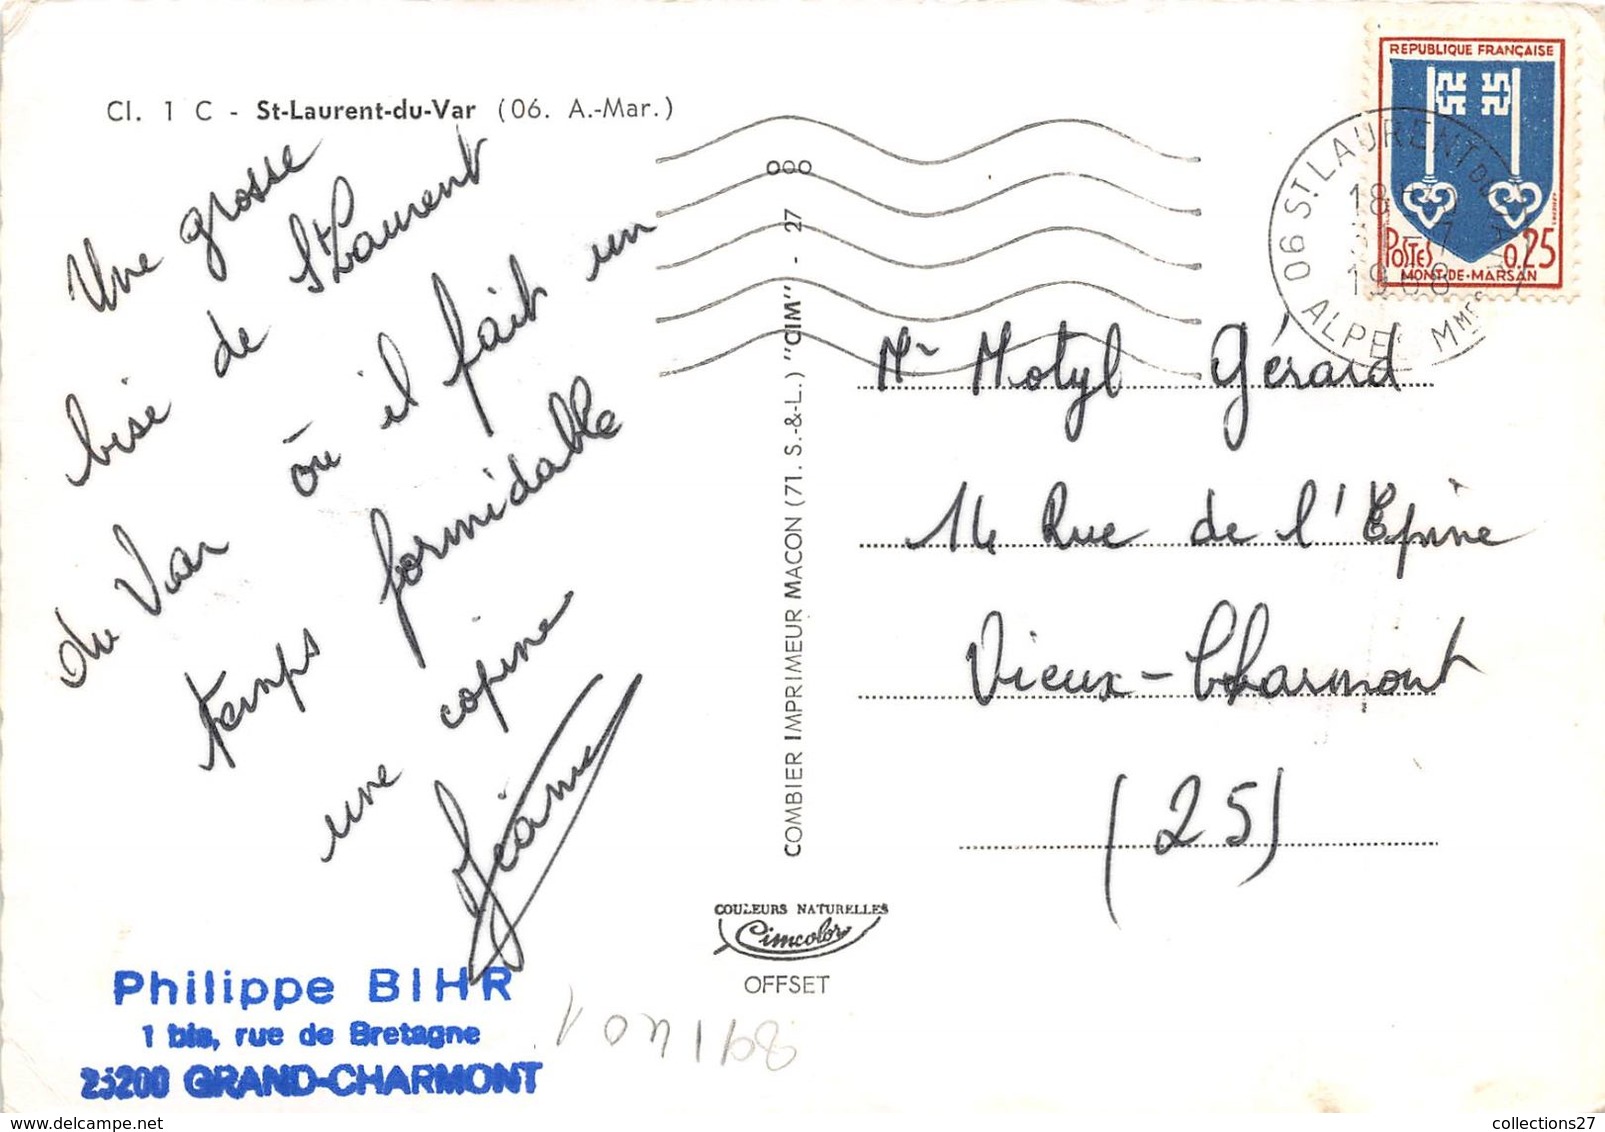 Cl. 1 C - St-Laurent-du-Var (06. A.-Mar.)
Une grosse
bise de St Laurent
du Var où il fait un
temps formidable
une copine
COMBIER IMPRIMEUR MACON (71. S.-&-L.) "CIM" - 27
COULEURS NATURELLES
Cimcolor
OFFSET
REPUBLIQUE FRANÇAISE
POSTES 0,25
MONT-DE-MARSAN
06 ST LAURENT DU VAR
18H
ALPES MMES
Mr Motyl Gérard
14 Rue de l'Epine
Vieux-Charmont
(25)
Philippe BIHR
1 bis, rue de Bretagne
25200 GRAND-CHARMONT
collections27